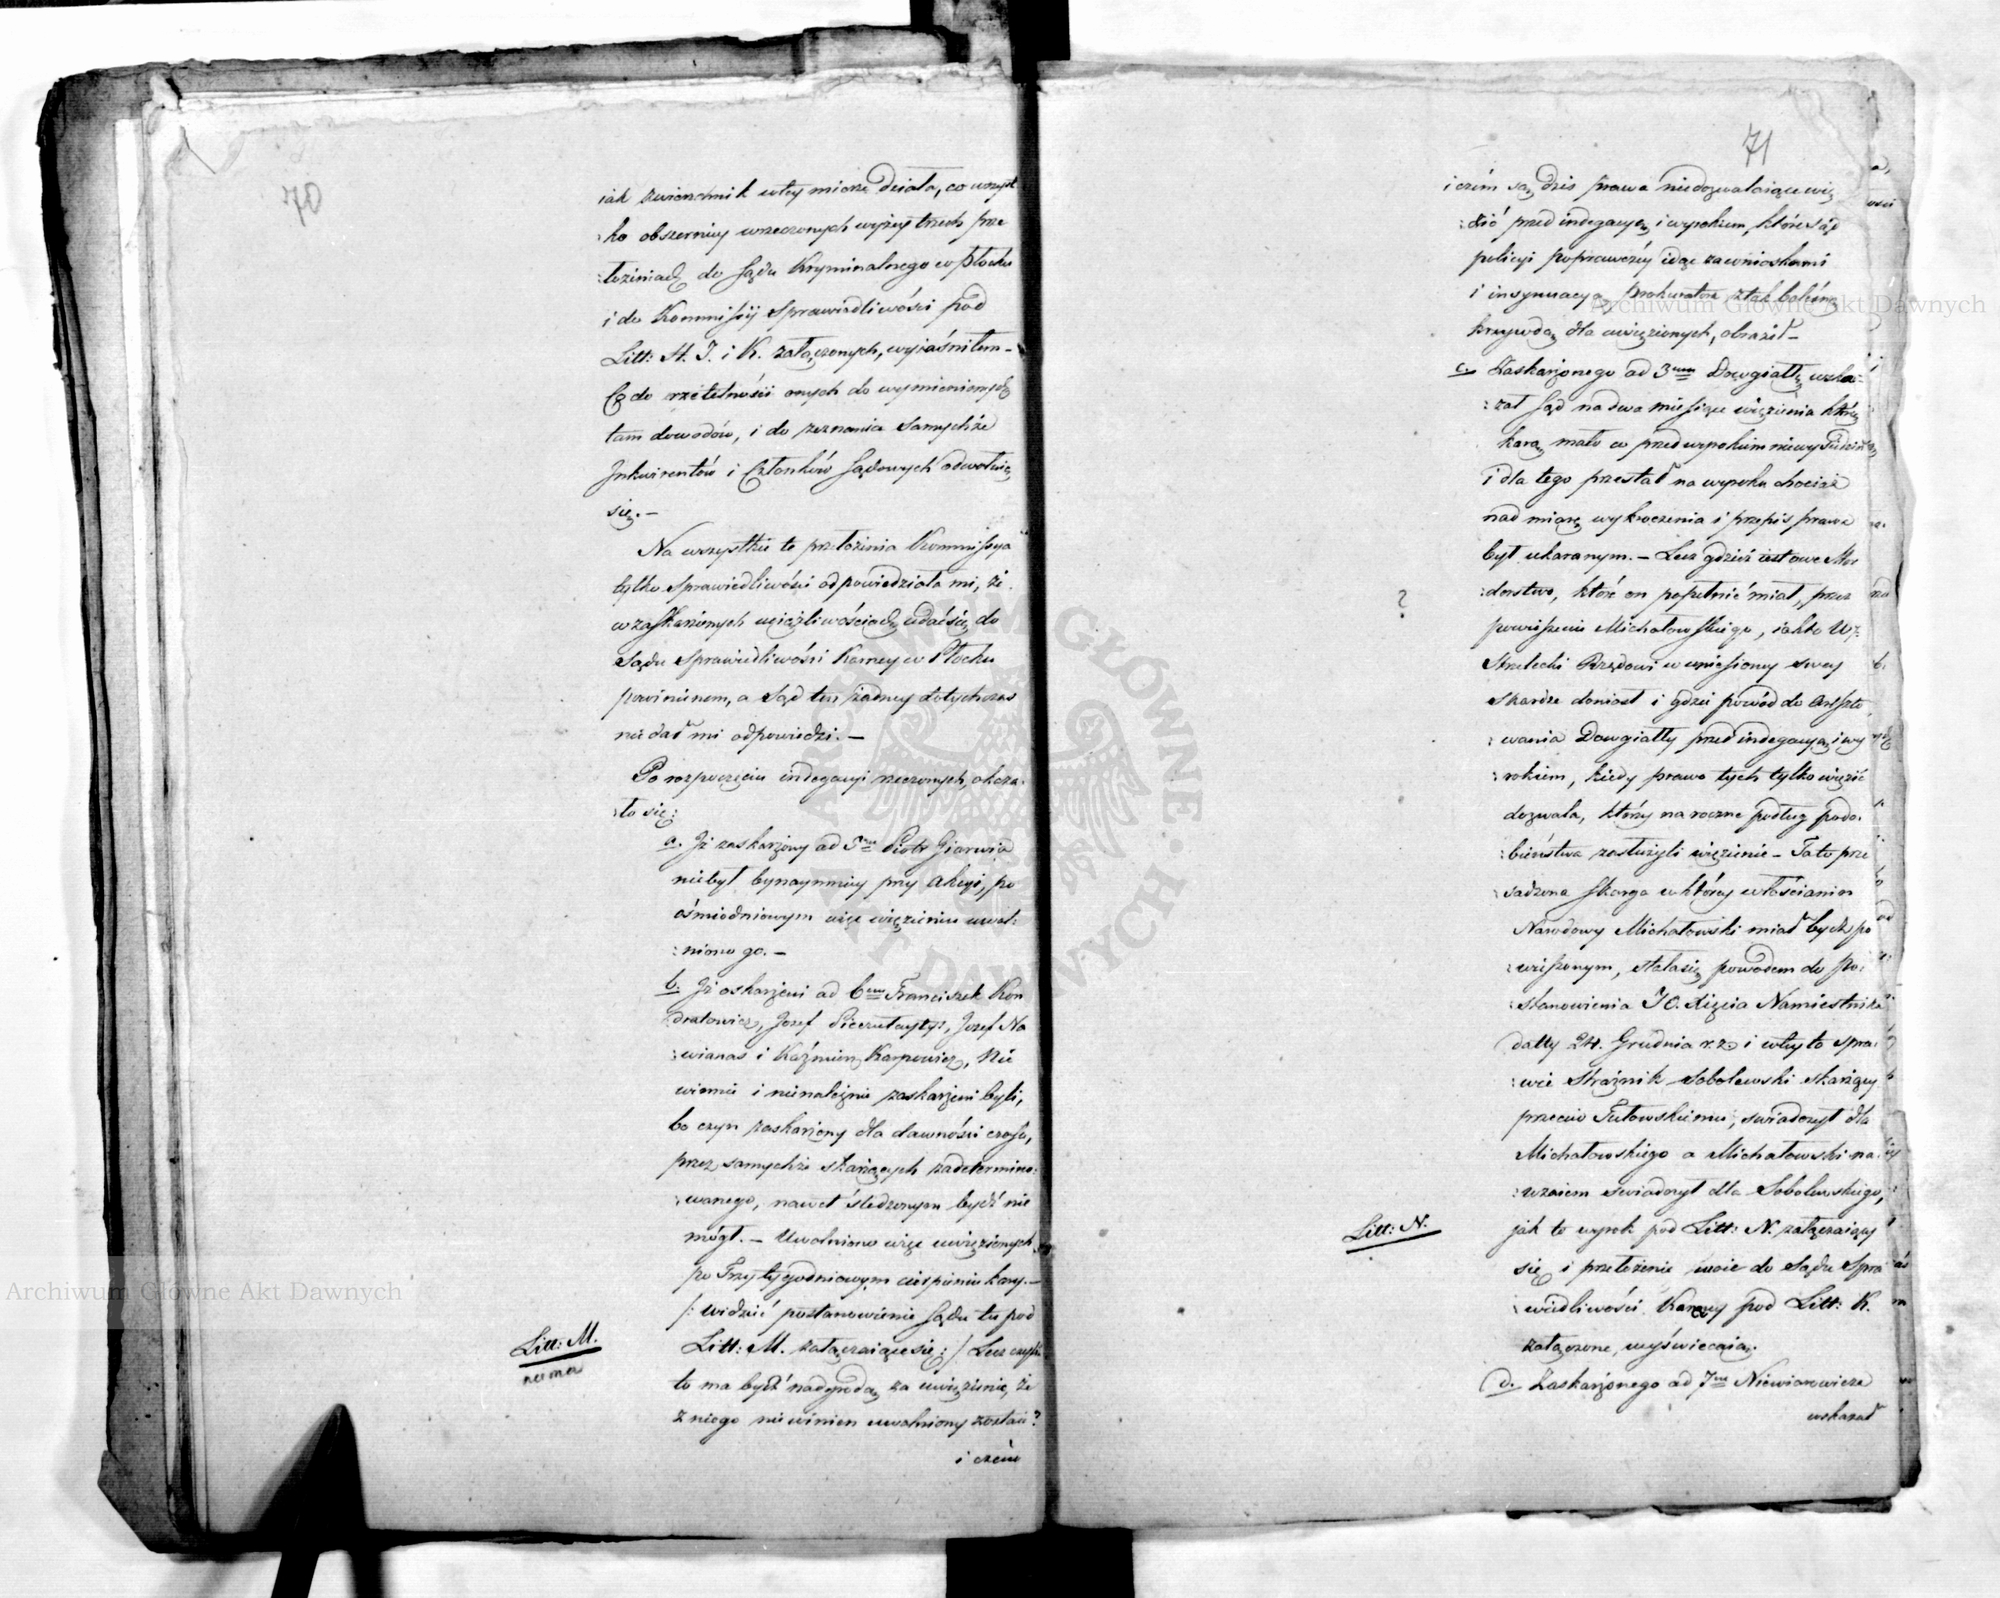 70
iak zwierzchnik w tey mierze działa, co wszyst
:ko obszerniey wrzeczonych wyżey trzech prze
:łożeniach do Sądu Kryminalnego w Płocku
i do Kommissyi Sprawiedliwości pod
Litt: H. I. i K. załączonych, wyiaśniłem –
Co do rzetelności onych do wymienionych
tam dowodów, i do zeznania samychże
Inkwirentów i Członków Sądowych odwołuię
się. –
Na wszystkie te przełożenia Kommissya
tylko Sprawiedliwości odpowiedziała mi, że
w zaskarżonych uciążliwościach udać się do
Sądu Sprawiedliwości Karney w Płocku
powinienem, a Sąd ten żadney dotychczas
nie dał mi odpowiedzi. –
Po rozpoczęciu indagacyi rzeczonych, okaza:
:ło się:
a. Iż zaskarżony ad 5um Piotr Giarwid
nie był bynaymniey przy akcyi, po
ośmiodniowym więc więzieniu uwol:
:niono go. –
b. Iż oskarżeni ad 6um Franciszek Kon
dratowicz, Jozef Pieczulaytys, Jozef No
:wianas i Kaźmierz Karpowicz, Nie
winnie i nienależnie zaskarżeni byli,
bo czyn zaskarżony dla dawności czasu,
przez samychże skarżących zadetermino:
:wanego, nawet śledzonym bydź nie
mógł. – Uwolniono więc uwięzionych
po Trzytygodniowym cierpieniu kary. –
/: widzieć postanowienie Sądu tu pod
Litt: M. załączaiące się :/ Lecz czyż
to ma bydź nadgrodą za uwięzienie, że
z niego niewinien uwolniony został?
i czém
Litt: M.
niema
71
i czém są dziś prawa niedozwalaiące wię
:zić przed indagacyą i wyrokiem, które Sąd
policyi poprawczey idąc za wnioskami
i insynuacyą Prokuratora z tak bolesną
krzywdą dla uwięzionych, obraził –
c. Zaskarżonego ad 3um Dowgiałłę wska:
:zał Sąd na dwa miesiące więzienia którą
karą mało co przed wyrokiem niewysiedział,
i dla tego przestał na wyroku chociaż
nad miarę wykroczenia i przepis prawa
był ukaranym. – Lecz gdzież iest owe Mor
:derstwo, które on popełnić miał, przez
powieszenie Michałowskiego, iak to W.
Strzelecki Rządowi w wniesioney swey
skardze doniosł i gdzie powód do areszto
:wania Dowgiałły przed indagacyą i wy
:rokiem, kiedy prawo tych tylko więzić
dozwala, którzy na roczne podług podo:
:bieństwa zasłużyli więzienie – Ta to prze
:sadzona skarga w którey włościanin
Narodowy Michałowski miał bydź po
:wieszonym, stała się powodem do po:
:stanowienia JO. Xięcia Namiestnika
datty 24. Grudnia r. z. i w tey to spra:
:wie Strażnik Sobolewski skarżący
przeciw Tutowskiemu, świadczył dla
Michałowskiego a Michałowski na:
:wzaiem świadczył dla Sobolewskiego,
jak to wyrok pod Litt: N. załączaiący
się i przełożenie moie do Sądu Spra
:wiedliwości Karney pod Litt: K.
załączone, wyświecaią.
d. Zaskarżonego ad 7um Niewiarowicza
wskazał
?
Litt: N.
Archiwum Główne Akt Dawnych
Archiwum Główne Akt Dawnych
ARCHIWUM GŁÓWNE AKT DAWNYCH